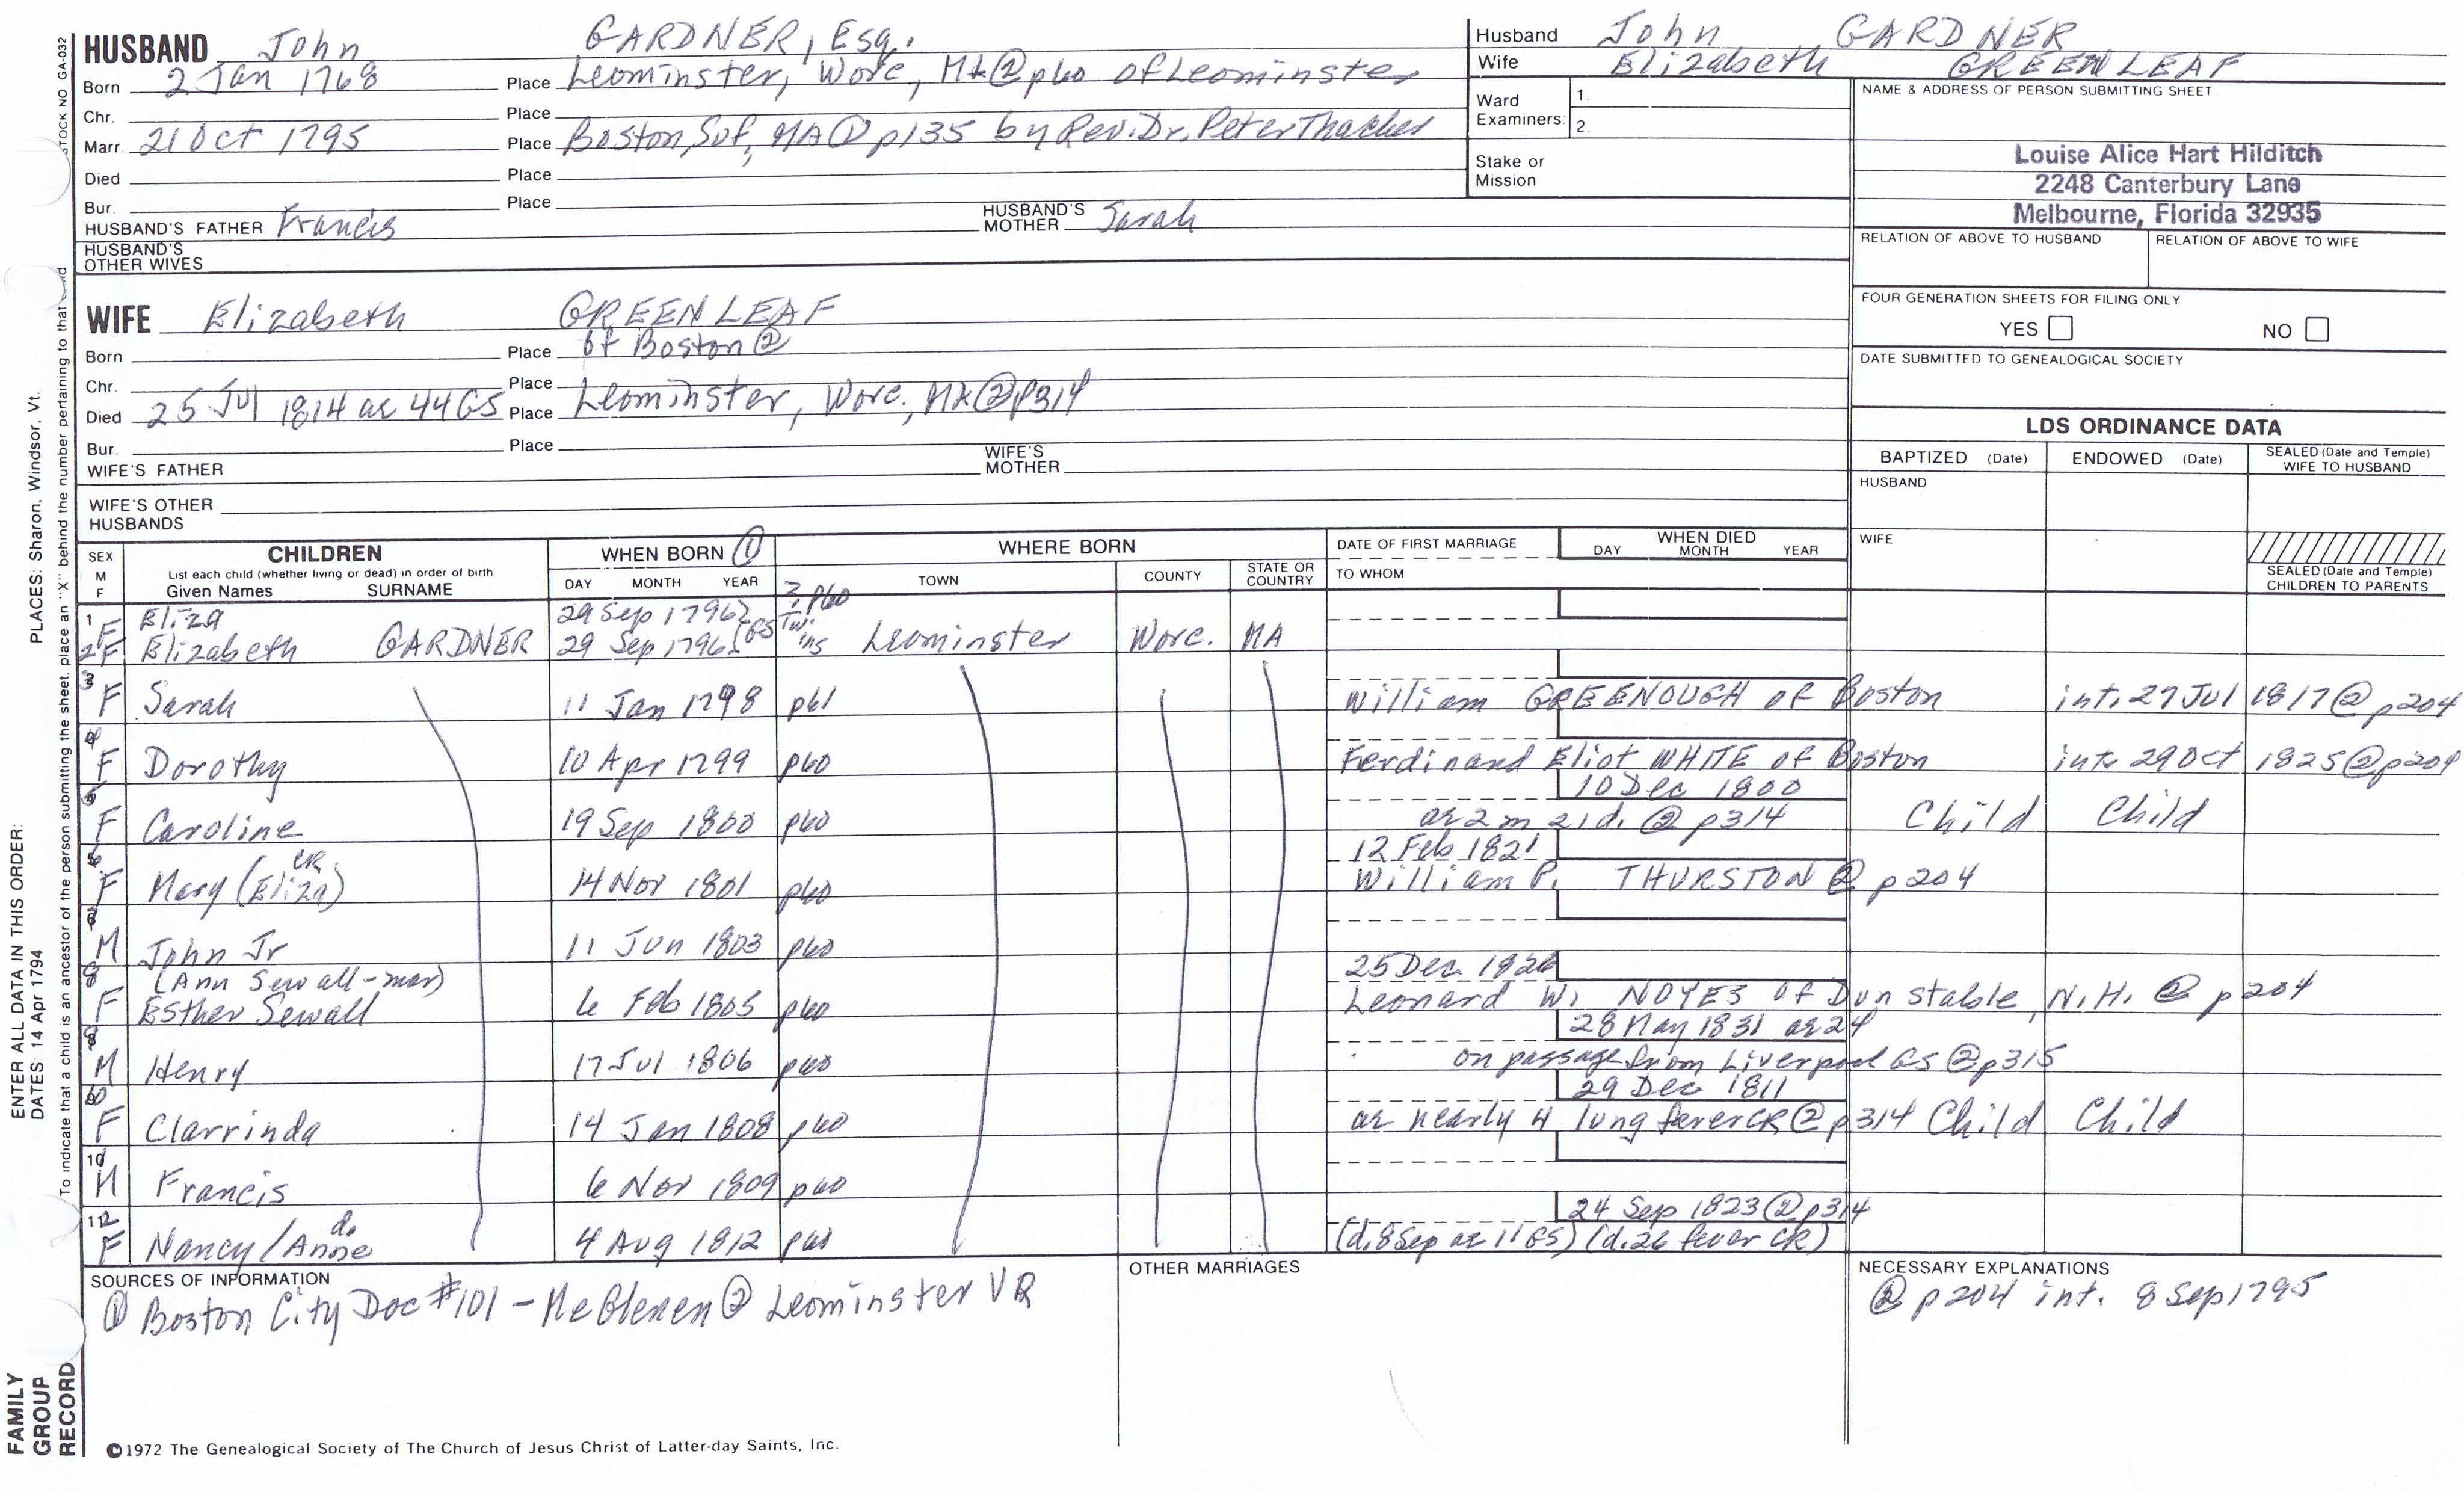 HUSBAND John GARDNER, Esq.
Born 2 Jan 1768 Place Leominster, Worc, MA ② p60 of Leominster
Chr. Place
Marr. 21 Oct 1795 Place Boston, Suf, MA ① p135 by Rev. Dr. Peter Thacher
Died Place
Bur. Place
HUSBAND'S FATHER Francis HUSBAND'S MOTHER Sarah
HUSBAND'S OTHER WIVES
WIFE Elizabeth GREENLEAF
Born Place of Boston ②
Chr. Place
Died 25 Jul 1814 ae 44 GS Place Leominster, Worc., MA ② p314
Bur. Place
WIFE'S FATHER WIFE'S MOTHER
WIFE'S OTHER HUSBANDS
Husband John GARDNER
Wife Elizabeth GREENLEAF
Ward Examiners: 1.
2.
Stake or Mission
NAME & ADDRESS OF PERSON SUBMITTING SHEET
Louise Alice Hart Hilditch
2248 Canterbury Lane
Melbourne, Florida 32935
RELATION OF ABOVE TO HUSBAND RELATION OF ABOVE TO WIFE
FOUR GENERATION SHEETS FOR FILING ONLY
YES NO
DATE SUBMITTED TO GENEALOGICAL SOCIETY
LDS ORDINANCE DATA
BAPTIZED (Date) ENDOWED (Date) SEALED (Date and Temple) WIFE TO HUSBAND
HUSBAND
WIFE
SEALED (Date and Temple) CHILDREN TO PARENTS
SEX M F CHILDREN List each child (whether living or dead) in order of birth Given Names SURNAME
WHEN BORN ① DAY MONTH YEAR
WHERE BORN TOWN COUNTY STATE OR COUNTRY
DATE OF FIRST MARRIAGE TO WHOM
WHEN DIED DAY MONTH YEAR
1 F Eliza 29 Sep 1796 p60
2 F Elizabeth GARDNER 29 Sep 1796 GS Twins Leominster Worc. MA
3 F Sarah 11 Jan 1798 p61 William GREENOUGH of Boston int. 27 Jul 1817 ② p204
4 F Dorothy 10 Apr 1799 p60 Ferdinand Eliot WHITE of Boston int. 29 Oct 1825 ② p204
10 Dec 1800
F Caroline 19 Sep 1800 p60 ae 2 m 21 d. ② p314 Child Child
12 Feb 1821
F Mary (Eliza) CR 14 Nov 1801 p60 William P. THURSTON ② p204
M John Jr 11 Jun 1803 p60
8 (Ann Sewall-mar) 25 Dec 1826
F Esther Sewall 6 Feb 1805 p60 Leonard W. NOYES of Dunstable, N.H. ② p204
28 May 1831 ae 24
M Henry 17 Jul 1806 p60 on passage from Liverpool GS ② p315
29 Dec 1811
F Clarrinda 14 Jan 1808 p60 ae nearly 4 lung fever CR ② p314 Child Child
10 M Francis 6 Nov 1809 p60
24 Sep 1823 ② p314
F Nancy/Anne d. 4 Aug 1812 (d. 8 Sep ae 11 GS) (d. 26 fever CR)
SOURCES OF INFORMATION
① Boston City Doc #101 - McGlenen ② Leominster VR
OTHER MARRIAGES
NECESSARY EXPLANATIONS
② p204 int. 8 Sep 1795
©1972 The Genealogical Society of The Church of Jesus Christ of Latter-day Saints, Inc.
FAMILY GROUP RECORD
ENTER ALL DATA IN THIS ORDER:
DATES: 14 Apr 1794
PLACES: Sharon, Windsor, Vt.
To indicate that a child is an ancestor of the person submitting the sheet, place an "X" behind the number pertaining to that
STOCK NO GA-032